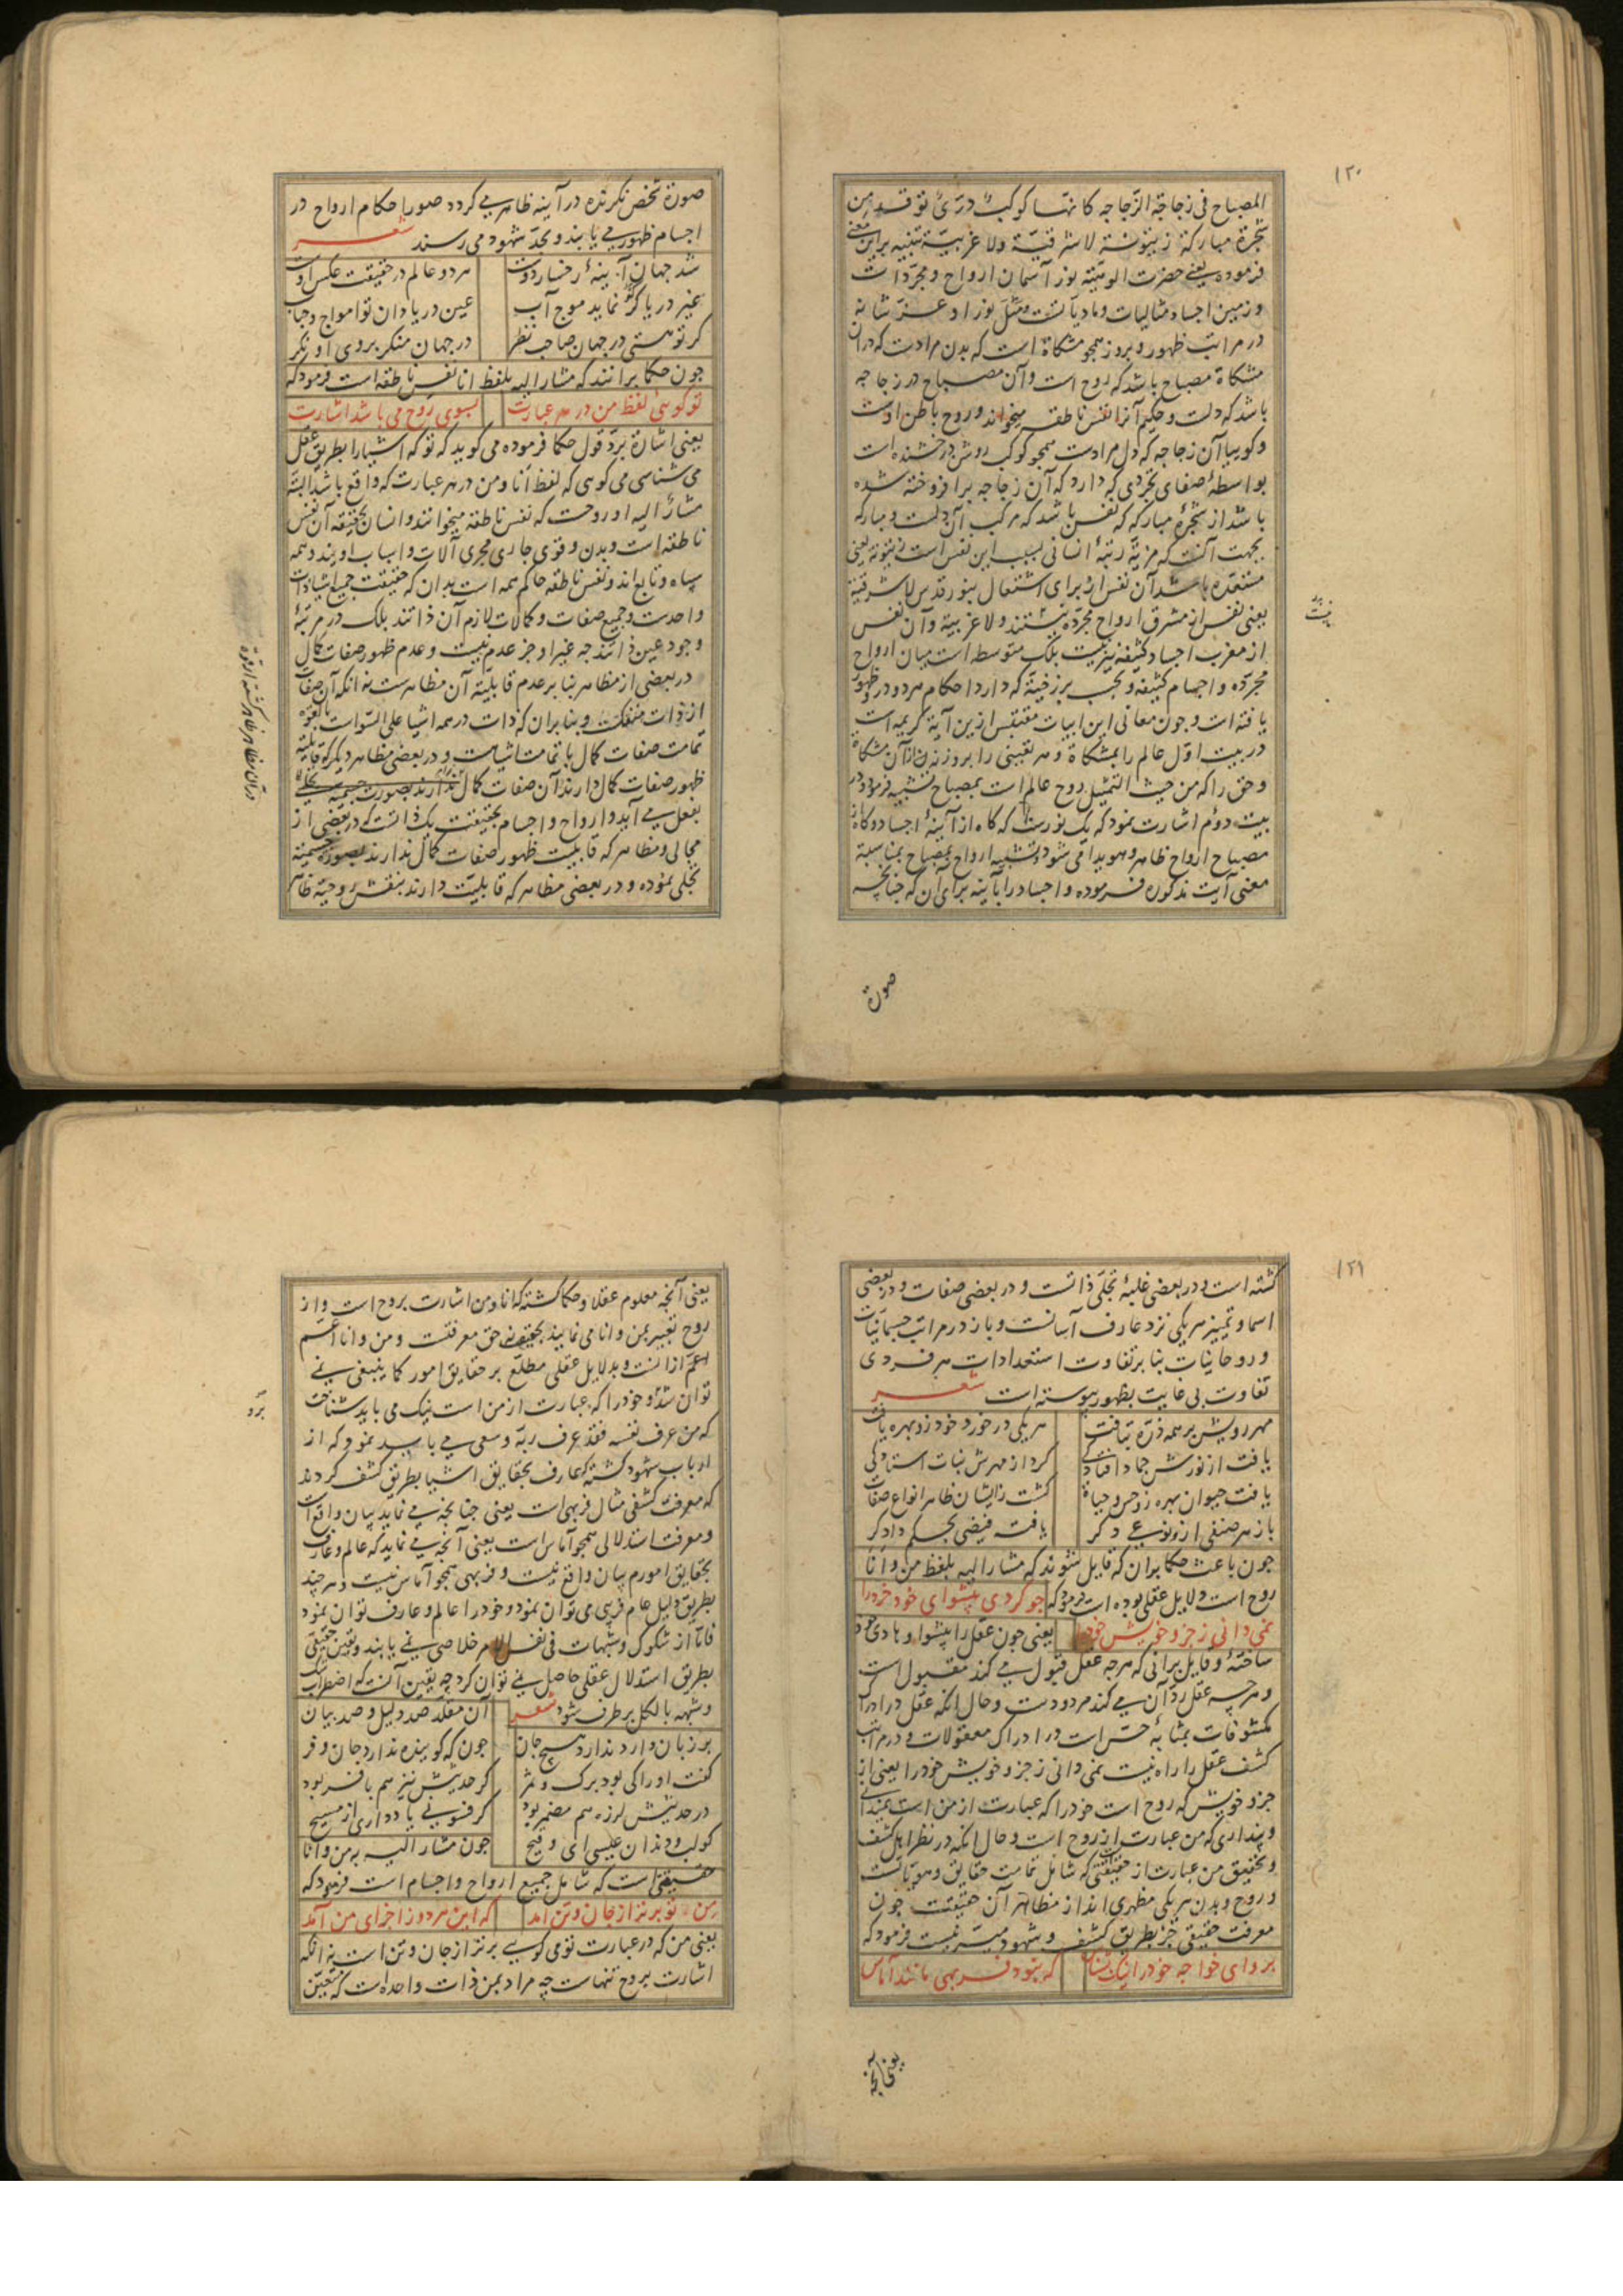 ١٢٠
المصباح فی زجاجة الزّجاجه کانّها کوکب درّیّ توقد من
شجرة مبارکة زیتونة لا شرقیّة ولا غربیّة تنبیه براین معنی
فرموده یعنی حضرت الوهیّة نور آسمان ارواح و مجرّداتست
و زمین اجساد مثالیات و مادیاتست و مثل نور او عزّ شانه
در مراتب ظهور و بروز همچو مشکاة است که بدن مرادست که در ان
مشکاة مصباح باشد که روح است و آن مصباح در زجاجه
باشد که دلست و حکیم آنرا نفس ناطقه میخواند و روح باطن اوست
و کوییا آن زجاجه که دل مرادست همچو کوکب روشن درخشنده است
بواسطهٔ صفای تجردی که دارد که آن زجاجه بر افروخته شده
باشد از شجرهٔ مبارکه که نفس باشد که مرکب آن دلست و مبارکه
بجهت آنست که مزیة رتبهٔ انسانی بسبب این نفس است زیتونة یعنی
مستعدّه باشد آن نفس از برای اشتعال بنور قدس لا شرقیة
یعنی نفس از مشرق ارواح مجرّده نیستند ولا غربیة و آن نفس
از مغرب اجساد کثیفه نیز نیست بلک متوسط است میان ارواح
مجرّده و اجسام کثیفه و بحسب برزخیّة که دارد احکام هر دو در و ظهور
یافته است و چون معانی این ابیات مقتبس ازین آیة کریمه است
در بیت اوّل عالم را بمشکاة و هر تعینی را بروزنه از آن مشکاة
و حق را که من حیث التمثیل روح عالم است بمصباح تشبیه فرمود و در
بیت دوّم اشارت نمود که یک نورست که کاه از آینهٔ اجساد و کاه از
مصباح ارواح ظاهر و هویدا می شود و تشبیه ارواح بمصباح بمناسبة
معنی آیت مذکوره فرموده و اجساد را بآینه برای آن که چنانچه
صورة
صورة شخص نکرنده در آینه ظاهر می کردد صور احکام ارواح در
اجسام ظهور می یابند و بحدّ شهود می رسند شعر
شد جهان آینهٔ رخسار دوست هر دو عالم در حقیقت عکس اوست
غیر دریا کر نماید موج آب عین دریا دان تو امواج و حباب
کر تو هستی در جهان صاحب نظر در جهان منکر بروی او نکر
چون حکما برانند که مشار الیه بلفظ انا نفس ناطقه است فرمود که
تو کویی لفظ من در هر عبارت بسوی روح می باشد اشارت
یعنی اشارة بردّ قول حکما فرموده می کوید که تو که اشیا را بطریق عقل
می شناسی می کویی که لفظ انا و من در هر عبارت که واقع باشد البته
مشارٌ الیه او روحست که نفس ناطقه میخوانند و انسان بحقیقه آن نفس
ناطقه است و بدن و قوی جاری مجری آلات و اسباب اویند و همه
سپاه و تابع اند و نفس ناطقه حاکم همه است بدان که حقیقت جمیع اشیا ذات
واحدست و جمیع صفات و کمالات لازم آن ذاتند بلک در مرتبهٔ
وجود عین ذاتند چه غیر او جز عدم نیست و عدم ظهور صفات کمال
در بعضی از مظاهر بنا بر عدم قابلیة آن مظاهرست نه آنکه آن صفات
از ذات منفکست و بنابران که ذات در همه اشیا علی السّواست بالقوّه
تمامت صفات کمال با تمامت اشیاست و در بعضی مظاهر دیکر که قابلیة
ظهور صفات کمال دارند آن صفات کمال
بفعل می آید و ارواح و اجسام بحقیقت یک ذاتست که در بعضی از
مجالی و مظاهر که قابلیت ظهور صفات کمال ندارند بصورة جسمیّة
تجلی نموده و در بعضی مظاهر که قابلیّت دارند بنقش روحیّة ظاهر
١٢١
کشته است و در بعضی غلبهٔ تجلّی ذاتست و در بعضی صفات و در بعضی
اسما و تمییز هر یکی نزد عارف آسانست و باز در مراتب جسمانیّات
و روحانیات بنا بر تفاوت استعدادات هر فردی
تفاوت بی غایت بظهور پیوسته است شعر
مهر رویش بر همه ذره بتافت هر یکی در خورد خود زو بهره یافت
یافت از نورش جماد افتادکی کرد از مهرش نبات استادکی
یافت حیوان بهره زو حس و حیاة کشت ز ایشان ظاهر انواع صفات
باز هر صنفی ازو نوعی دکر یافت فیضی بحکم دادکر
چون باعث حکما بران که قایل شوند که مشار الیه بلفظ من و انا
روح است دلایل عقلی بوده است فرمود که چو کردی پیشوای خود خرد را
نمی دانی ز جزو خویش خود را یعنی چون عقل را پیشوا و هادی خود
ساختهٔ و قایل برانی که هر چه عقل قبول می کند مقبول است
و هر چه عقل ردّ آن می کند مردودست و حال آنکه عقل در ادراک
مکشوفات بمثابهٔ حسّ است در ادراک معقولات و در مراتب
کشف عقل را راه نیست نمی دانی ز جزو خویش خود را یعنی از
جزو خویش که روح است خود را که عبارت از من است نمیدانی
و پنداری که من عبارت از روح است و حال آنکه در نظر اهل کشف
و تحقیق من عبارت از حقیقتی که شامل تمامت حقایق و هویّاتست
و روح و بدن هر یکی مظهری اند از مظاهر آن حقیقت چون
معرفت حقیقی جز بطریق کشف و شهود میسّر نیست فرمود که
برو ای خواجه خود را نیک بشناس که نبود فربهی مانند آماس
یعنی آنچه
یعنی آنچه معلوم عقلا و حکما کشته که انا و من اشارت بروح است و از
روح تعبیر بمن و انا می نمایند بحقیقت نه حق معرفتست و من و انا اعم
اعمّ ازانست و بدلایل عقلی مطلع بر حقایق امور کما ینبغی نمی
توان شد و خود را که عبارت از من است نیک می باید شناخت
که من عرف نفسه فقد عرف ربّه و سعی می باید نمود که از
ارباب شهود کشته عارف بحقایق اشیا بطریق کشف کردند
که معرفت کشفی مثال فربهی است یعنی چنانچه می نماید بیان واقع است
و معرفت استدلالی همچو آماس است یعنی آنچه می نماید که عالم و عارف
بحقایق امورم بیان واقع نیست و فربهی همچو آماس نیست و هر چند
بطریق دلیل عام فریبی می توان نمود و خود را عالم و عارف توان نمود
فاما از شکوک و شبهات فی نفس الامر خلاصی نمی یابند و یقین حقیقی
بطریق استدلال عقلی حاصل نمی توان کرد چه یقین آنست که اضطراب
و شبهه بالکل بر طرف شود شعر آن مقلد صد دلیل و صد بیان
بر زبان وارد ندارد هیچ جان چون که کوینده ندارد جان و فر
کفت او را کی بود برک و ثمر کر حدیثش نیز هم با فر بود
در حدیثش لرزه هم مضمر بود کر فسونی یاد داری از مسیح
کو لب و دندان عیسی ای وقیح چون مشار الیه به من و انا
حقیقتی است که شامل جمیع ارواح و اجسام است فرمود که
من و تو برتر از جان و تن آمد که این هر دو ز اجزای من آمد
یعنی من که در عبارت تو می کویی برتر از جان و تن است نه آنکه
اشارت بروح تنهاست چه مراد بمن ذات واحداست که بتعین